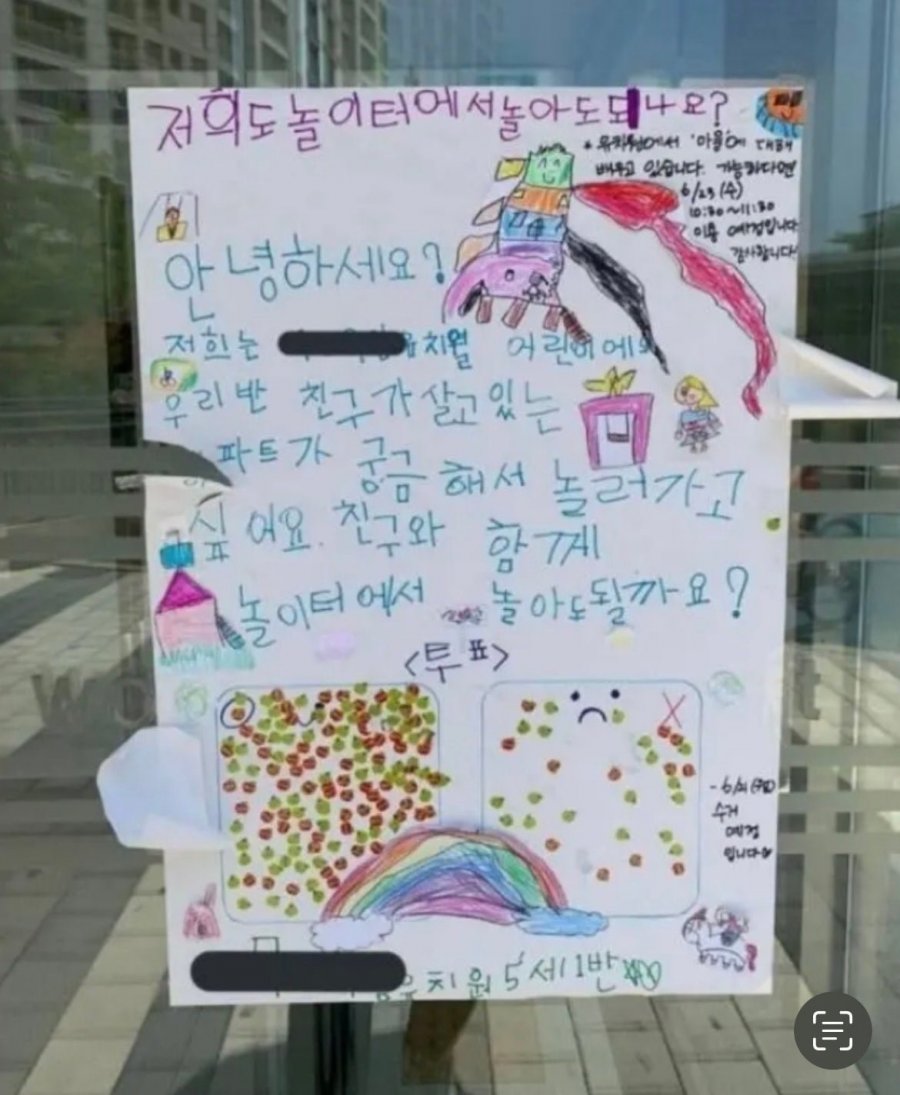 저희도놀이터에서놀아도되나요?
* 유치원에서 '마을'에 대해
배우고 있습니다. 가능하다면
6/23 (수)
10:30~11:30
이용 예정입니다
감사합니다!
안녕하세요?
저희는 유치월 어린이에요
우리반 친구가살고있는
아파트가 궁금해서 놀러가고
싶어요. 친구와 함께
놀이터에서 놀아도될까요?
<투표>
O X
수거
예정
입니다♡
유치원 5세1반